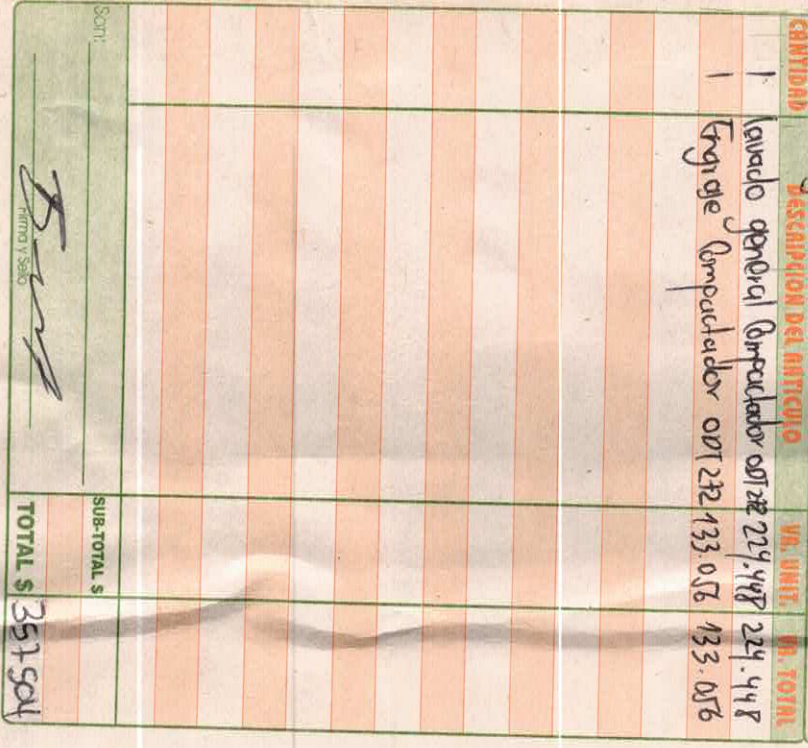 CANTIDAD DESCRIPCION DEL ARTICULO VR. UNIT. VR. TOTAL
1 lavado general Compactador ODT 272 224.448 224.448
1 Engrase Compactador ODT 272 133.056 133.056
Son: SUB-TOTAL $
Firma y Sello TOTAL $ 357504